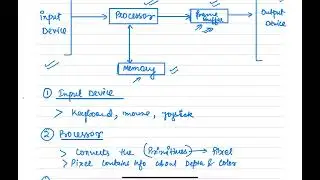 Input Device
Processor
Frame Buffer
Output Device
Memory
① Input Device
> Keyboard, mouse, joystick
② Processor
> Converts the (Primitives) → Pixel
> Pixel contains info about Depth & Color